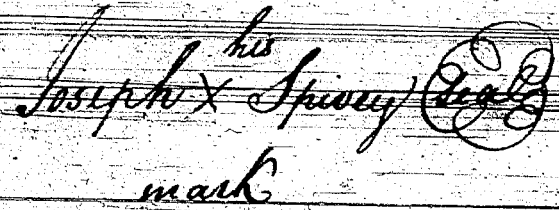 his
Joseph X Spivey Seal
mark